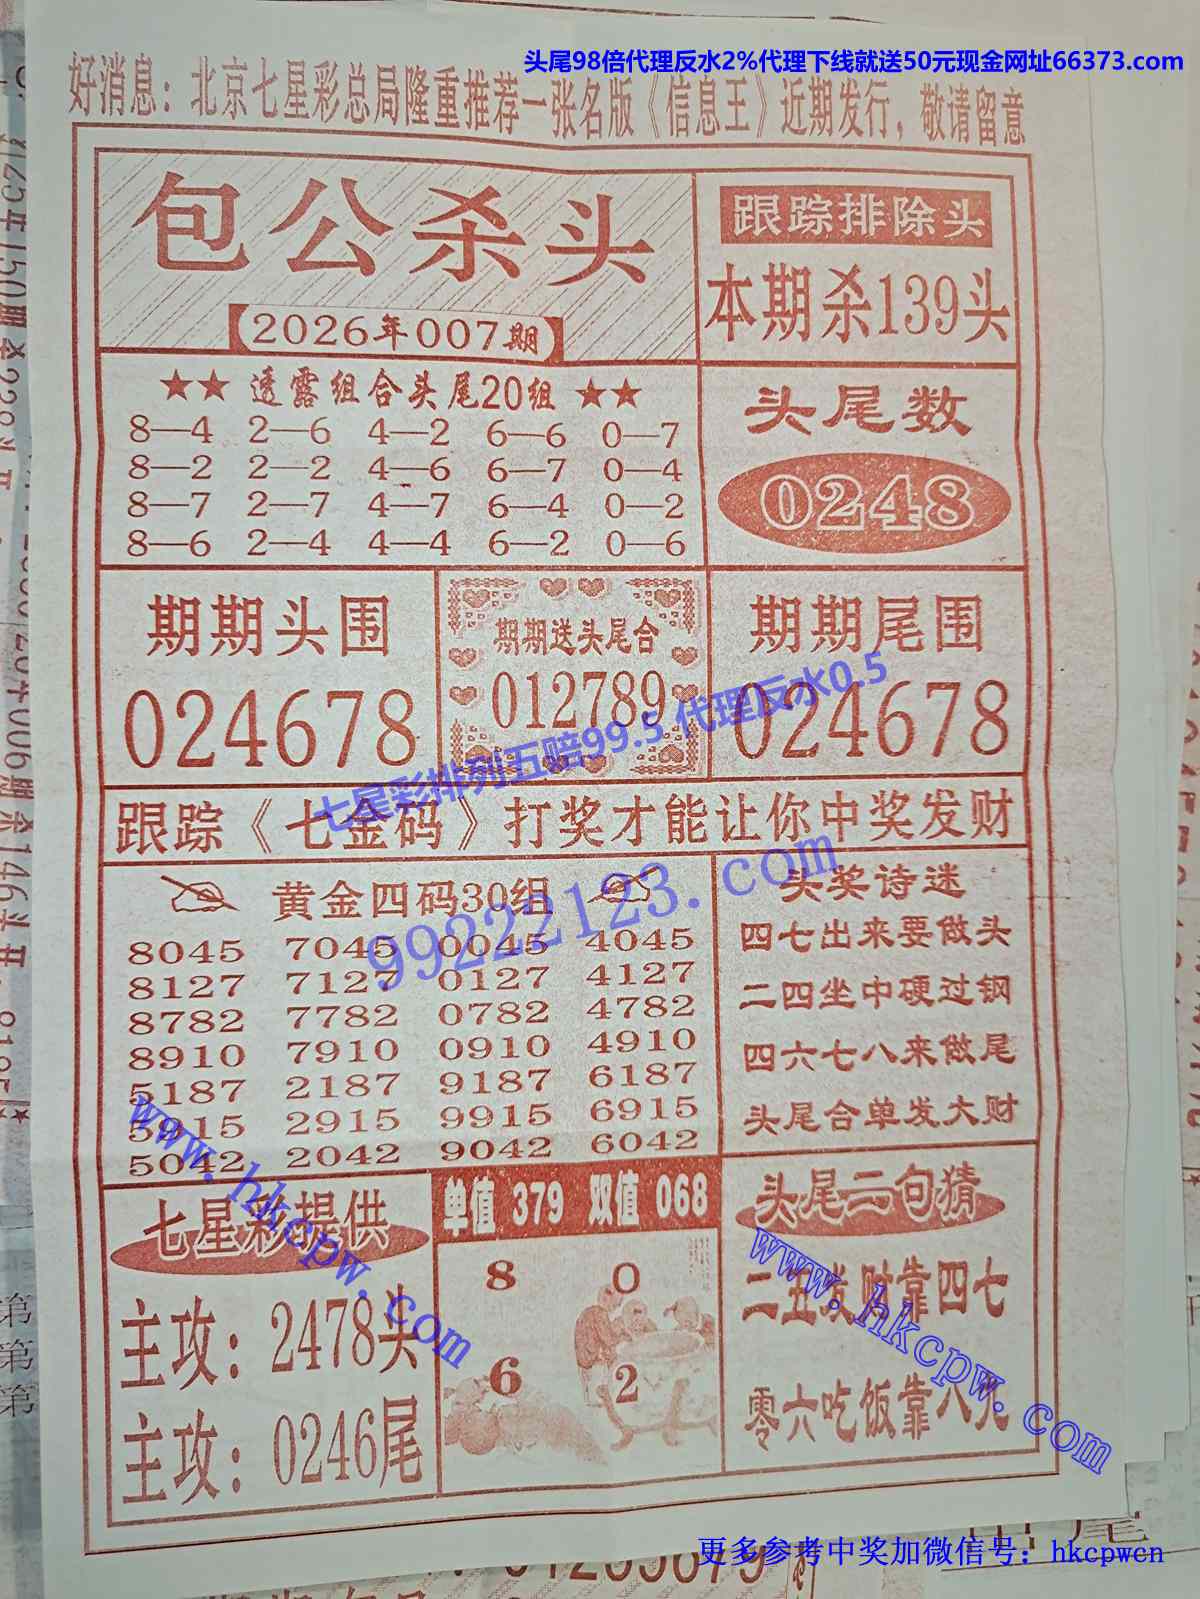 头尾98倍代理反水2%代理下线就送50元现金网址66373.com
好消息：北京七星彩总局隆重推荐一张名版《信息王》近期发行，敬请留意
包公杀头
【2026年007期】
跟踪排除头
本期杀139头
★★ 透露组合头尾20组 ★★
8—4 2—6 4—2 6—6 0—7
8—2 2—2 4—6 6—7 0—4
8—7 2—7 4—7 6—4 0—2
8—6 2—4 4—4 6—2 0—6
头尾数
0248
期期头围
024678
期期送头尾合
012789
期期尾围
024678
七星彩排列五赔99.5 代理反水0.5
跟踪《七金码》打奖才能让你中奖发财
99222123.com
黄金四码30组
8045 7045 0045 4045
8127 7127 0127 4127
8782 7782 0782 4782
8910 7910 0910 4910
5187 2187 9187 6187
5915 2915 9915 6915
5042 2042 9042 6042
头奖诗迷
四七出来要做头
二四坐中硬过钢
四六七八来做尾
头尾合单发大财
七星彩提供
主攻：2478头
主攻：0246尾
单值 379 双值 068
8 0
6 2
头尾二句猜
二五发财靠四七
零六吃饭靠八九
www.hkcpw.com
www.hkcpw.com
更多参考中奖加微信号：hkcpwcn